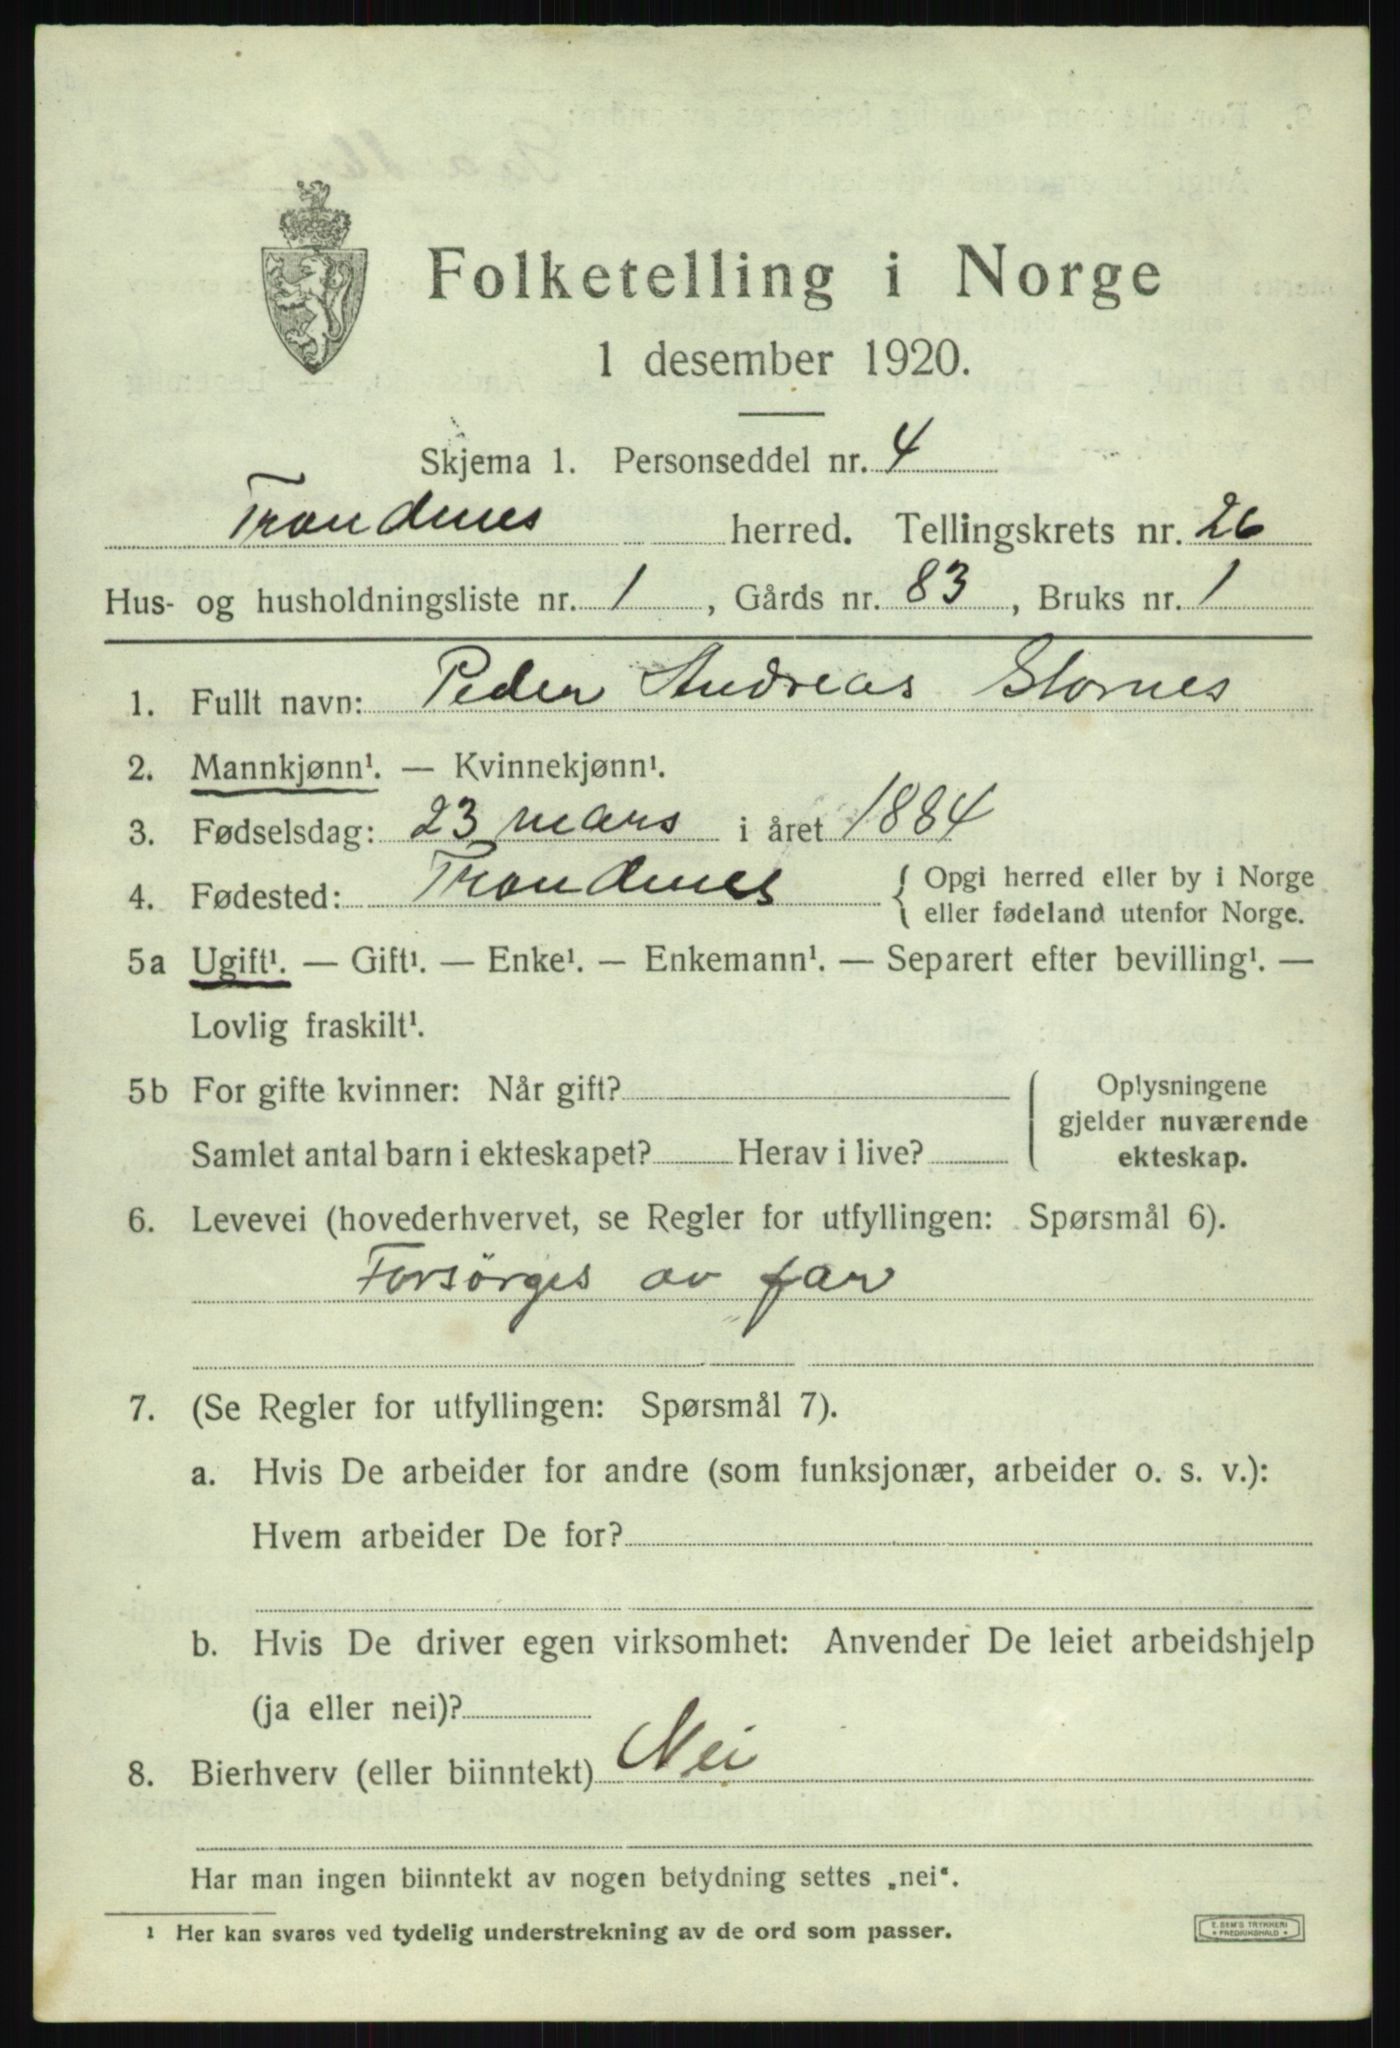 Folketelling i Norge
1 desember 1920.
Skjema 1. Personseddel nr. 4
Trondenes herred. Tellingskrets nr. 26
Hus- og husholdningsliste nr. 1, Gårds nr. 83, Bruks nr. 1
1. Fullt navn: Peder Andreas Stornes
2. Mannkjønn¹. — Kvinnekjønn¹.
3. Fødselsdag: 23 mars i året 1884
4. Fødested: Trondenes { Opgi herred eller by i Norge
eller fødeland utenfor Norge.
5a Ugift¹. — Gift¹. — Enke¹. — Enkemann¹. — Separert efter bevilling¹. —
Lovlig fraskilt¹.
5b For gifte kvinner: Når gift? { Oplysningene
gjelder nuværende
Samlet antal barn i ekteskapet? Herav i live? ekteskap.
6. Levevei (hovederhvervet, se Regler for utfyllingen: Spørsmål 6).
Forsörges av far
7. (Se Regler for utfyllingen: Spørsmål 7).
a. Hvis De arbeider for andre (som funksjonær, arbeider o. s. v.):
Hvem arbeider De for?
b. Hvis De driver egen virksomhet: Anvender De leiet arbeidshjelp
(ja eller nei)?
8. Bierhverv (eller biinntekt) Nei
Har man ingen biinntekt av nogen betydning settes „nei“.
¹ Her kan svares ved tydelig understrekning av de ord som passer.
E. SEM'S TRYKKERI
• FREDRIKSHALD •